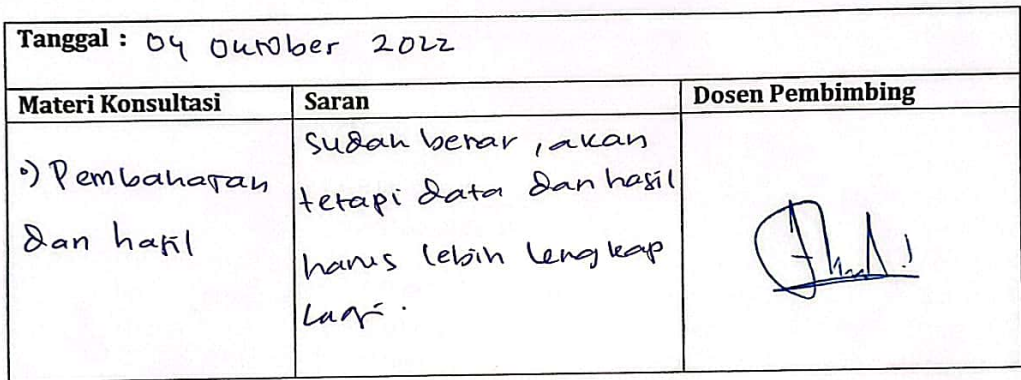 Tanggal : 04 Oktober 2022
Materi Konsultasi
Saran
Dosen Pembimbing
•) Pembahasan
dan hasil
sudah benar, akan
tetapi data dan hasil
harus lebih lengkap
lagi.